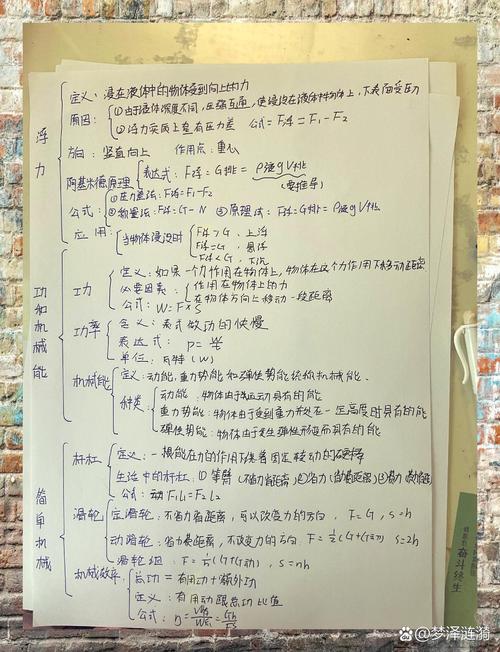 浮力
定义：浸在液体中的物体受到向上的力
原因：①由于液体深度不同，压强互通，使浸没在液体中物体上，下表面受压力
②浮力实质上查有压力差 公式=F浮=F₁-F₂
方向：竖直向上 作用点：重心
阿基米德原理 表达式：F浮=G排=ρ液gV排
(要推导)
公式：①压力差法：F浮=F₁-F₂
②称量法：F浮=G-N ③原理法：F浮=G排=ρ液gV排
应用：当物体浸没时
F浮>G，上浮
F浮=G，悬浮
F浮<G，下沉
功和机械能
功
定义：如果一个力作用在物体上，物体在这个力作用下移动距离
必要因素：作用在物体上的力
在物体方向上移动一段距离
公式：W=F×S
功率
含义：表式做动的快慢
表达式：P=
单位：瓦特(W)
机械能
定义：动能，重力势能和弹性势能统称机械能.
种类
动能：物体由于运动具有的能
重力势能：物体由于受到重力并处在一定高度时具有的能
弹性势能：物体由于发生弹性形变而具有的能
简单机械
杠杠
定义：一根能在力的作用下绕着固定转动的硬棒
生活中的杠杠：①等臂
公式：动F₁L₁=F₂L₂
滑轮
定滑轮：不省力省距离，可以改变力的方向，F=G，S=h
动滑轮：省力费距离，不改变力的方向 F=½(G+G动) S=2h
滑轮组：F=(G+G动)，S=nh
机械效率
总功=有用功+额外功
定义：有用动跟总功比值
公式：η=W有/W总=Gh/FS
奋斗终生
@梦泽涟漪